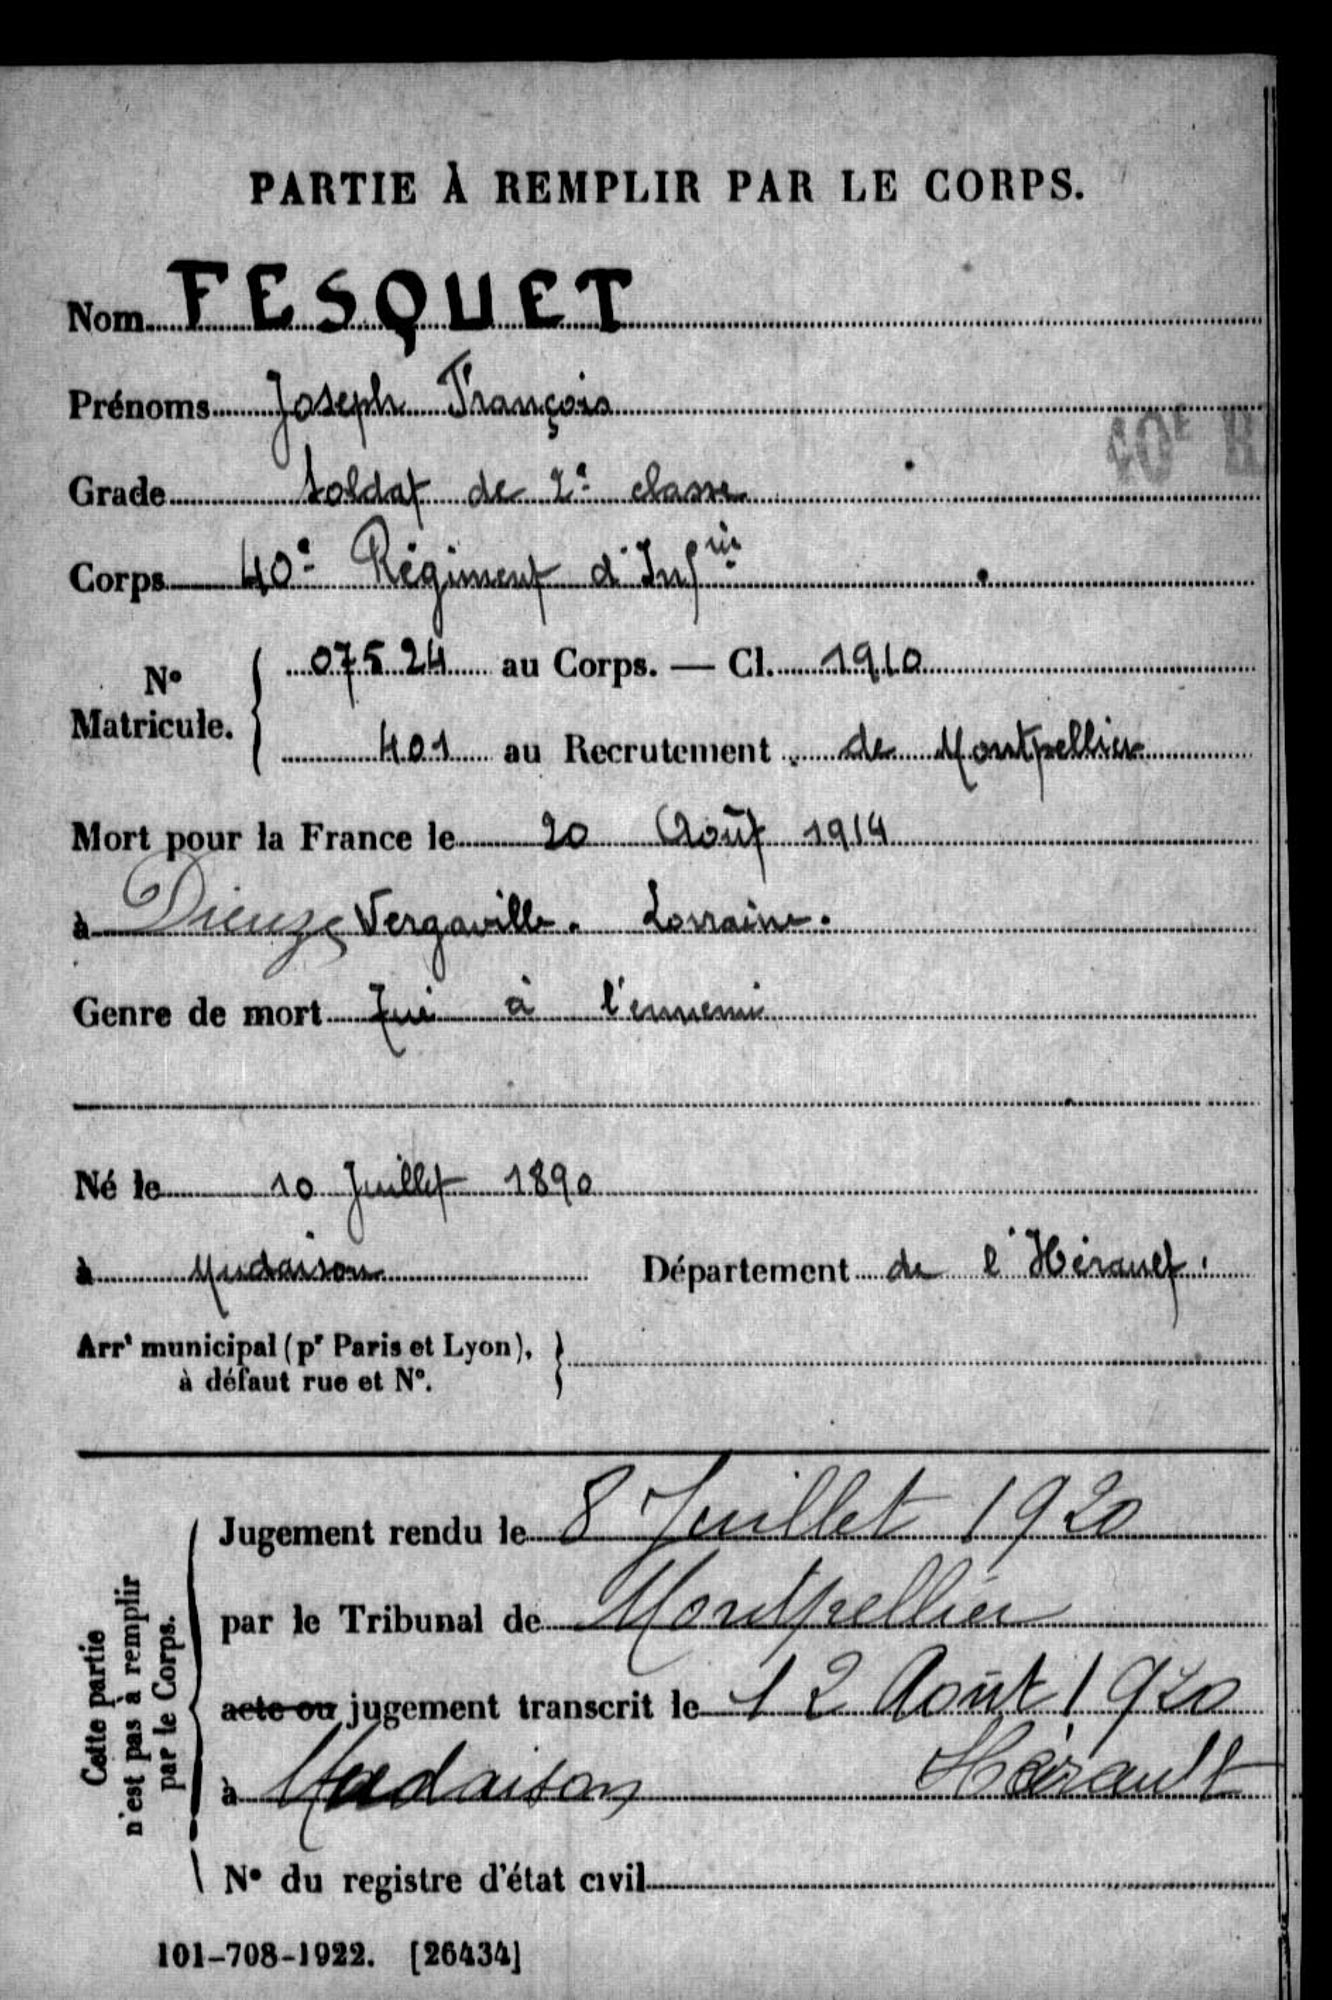 PARTIE À REMPLIR PAR LE CORPS.
Nom FESQUET
Prénoms Joseph François
40E R
Grade Soldat de 2e classe
Corps 40e Régiment d'Infrie
N° Matricule. 07524 au Corps. — Cl. 1910
401 au Recrutement de Montpellier
Mort pour la France le 20 Août 1914
à Dieuze Vergaville. Lorraine.
Genre de mort Tué à l'ennemi
Né le 10 Juillet 1890
à Mudaison Département de l'Hérault.
Arrt municipal (pr Paris et Lyon),
à défaut rue et N°.
Cette partie
n'est pas à remplir
par le Corps.
Jugement rendu le 8 Juillet 1920
par le Tribunal de Montpellier
acte ou jugement transcrit le 12 Août 1920
à Mudaison Hérault
N° du registre d'état civil
101-708-1922. [26434]